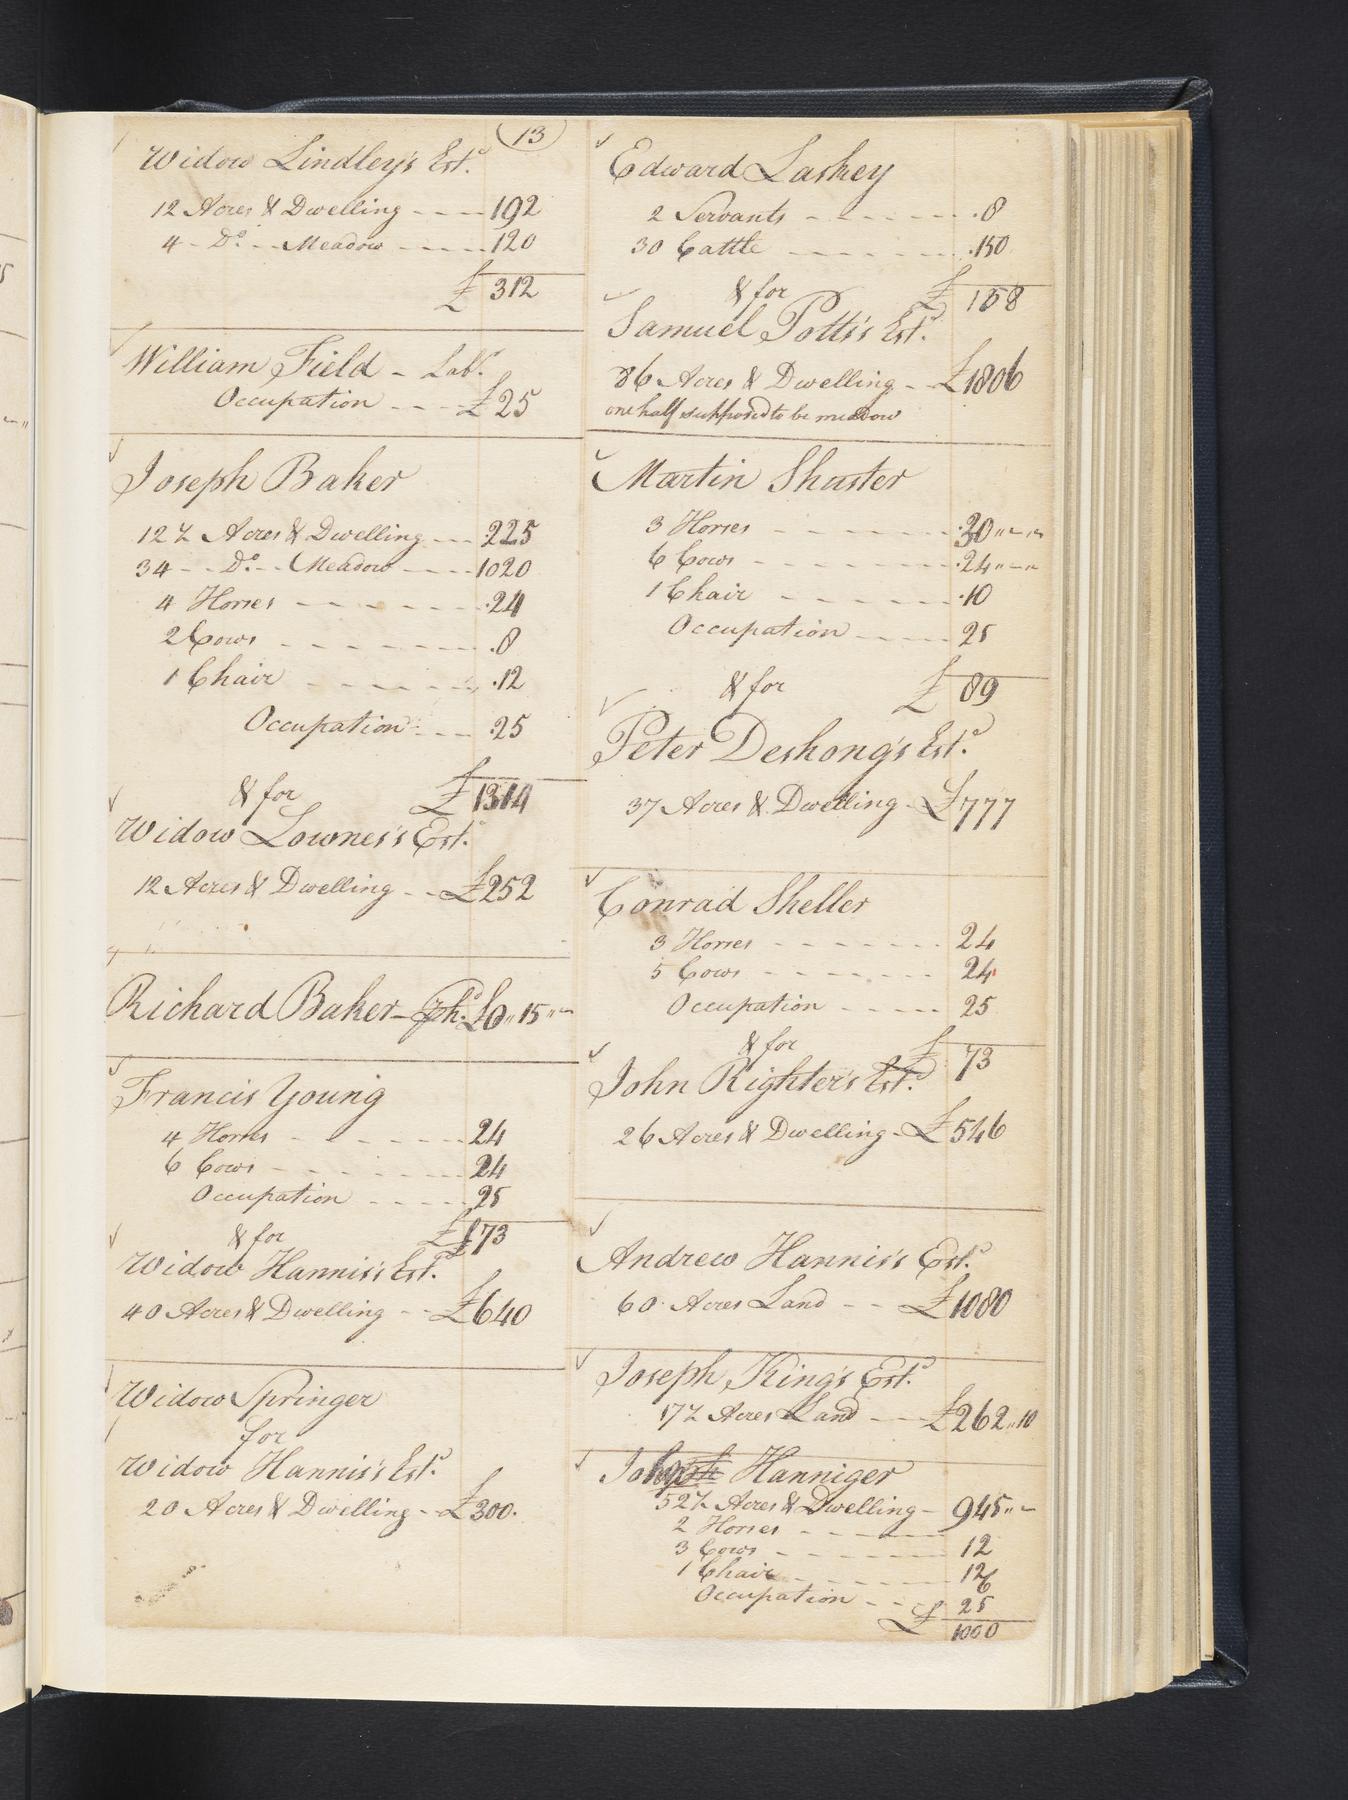 13
Widow Lindley's Est.
12 Acres & Dwelling - - - - 192
4 - Do. - - Meadow - - - - - 120
£ 312
William Field - Labr.
Occupation - - - £25
Joseph Baker
12½ Acres & Dwelling - - - 225
34 - - Do. - - Meadow - - - - 1020
4 Horses - - - - - - - 24
2 Cows - - - - - - - 8
1 Chair - - - - - - 12
Occupation - - - 25
& for £1314
Widow Lownes's Est.
12 Acres & Dwelling - - £252
Richard Baker - £0,,15,,-
Francis Young
4 Horses - - - - - - 24
6 Cows - - - - - - 24
Occupation - - - - 25
& for £73
Widow Hannis's Est.
40 Acres & Dwelling - - £640
Widow Springer
for
Widow Hannis's Est.
20 Acres & Dwelling - £300.
Edward Laskey
2 Servants - - - - - - - 8
30 Cattle - - - - - - 150
& for £158
Samuel Potts's Est.
86 Acres & Dwelling - £1806
one half supposed to be meadow
Martin Shuster
3 Horses - - - - - - 30,,-,,-
6 Cows - - - - - - - 24,,-,,-
1 Chair - - - - - - 10
Occupation - - - - 25
& for £ 89
Peter Deshong's Est.
37 Acres & Dwelling - £777
Conrad Sheller
3 Horses - - - - - - 24
5 Cows - - - - - - 24
Occupation - - - - - 25
& for £ 73
John Righter's Est.
26 Acres & Dwelling - £546
Andrew Hannis's Est.
60 Acres Land - - £1080
Joseph King's Est.
17½ Acres Land - - £262,,10
John Hanniger
52½ Acres & Dwelling - 945,,-
2 Horses - - - - - - 12
3 Cows - - - - - - 12
1 Chair - - - - - - 6
Occupation - - - 25
£ 1000